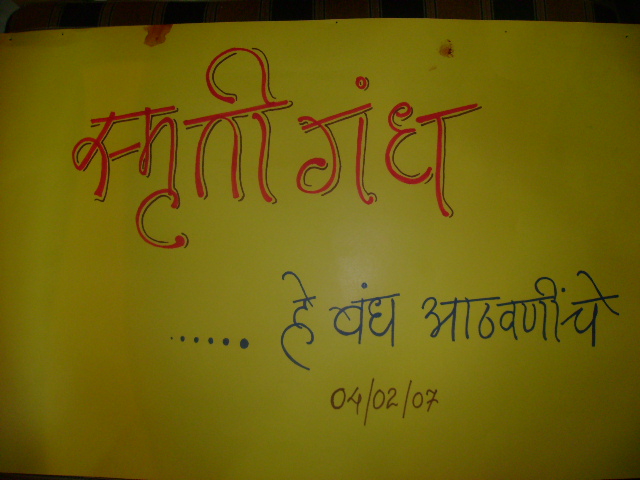 स्मृती गंध
...... हे बंध आठवणींचे
04/02/07